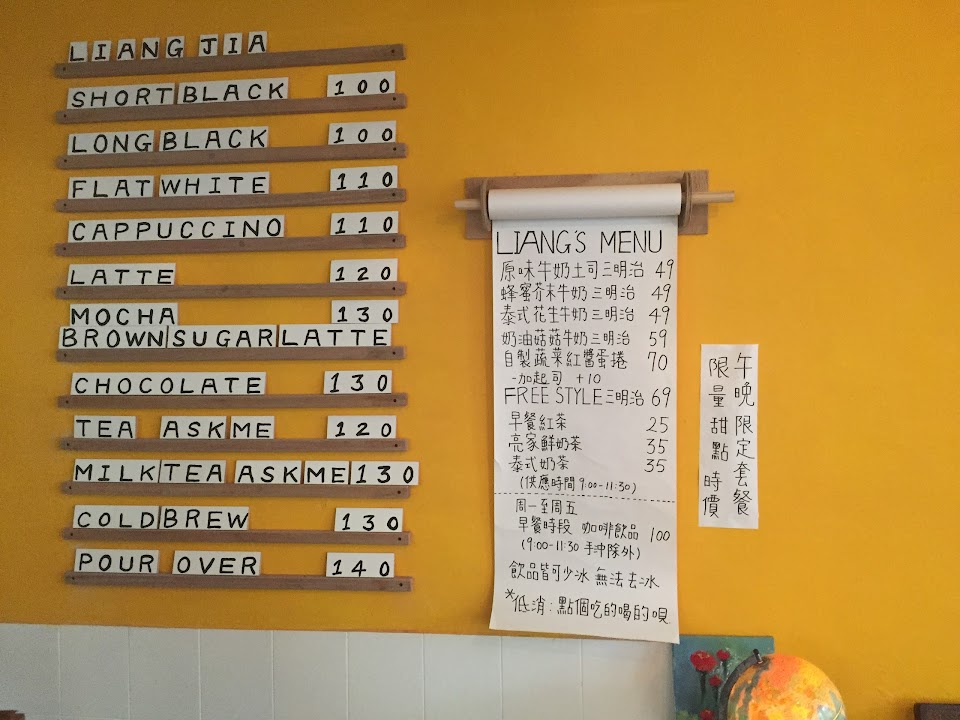 LIANG JIA
SHORT BLACK 100
LONG BLACK 100
FLAT WHITE 110
CAPPUCCINO 110
LATTE 120
MOCHA 130
BROWN SUGAR LATTE
CHOCOLATE 130
TEA ASK ME 120
MILK TEA ASK ME 130
COLD BREW 130
POUR OVER 140
LIANG'S MENU
原味牛奶土司三明治 49
蜂蜜芥末牛奶三明治 49
泰式花生牛奶三明治 49
奶油菇菇牛奶三明治 59
自製蔬菜紅醬蛋捲 70
-加起司 +10
FREE STYLE三明治 69
早餐紅茶 25
亮家鮮奶茶 35
泰式奶茶 35
(供應時間9:00-11:30)
周一至周五
早餐時段 咖啡飲品 100
(9:00-11:30 手沖除外)
飲品皆可少冰 無法去冰
*低消:點個吃的喝的唄
午晚限定套餐
限量甜點 時價